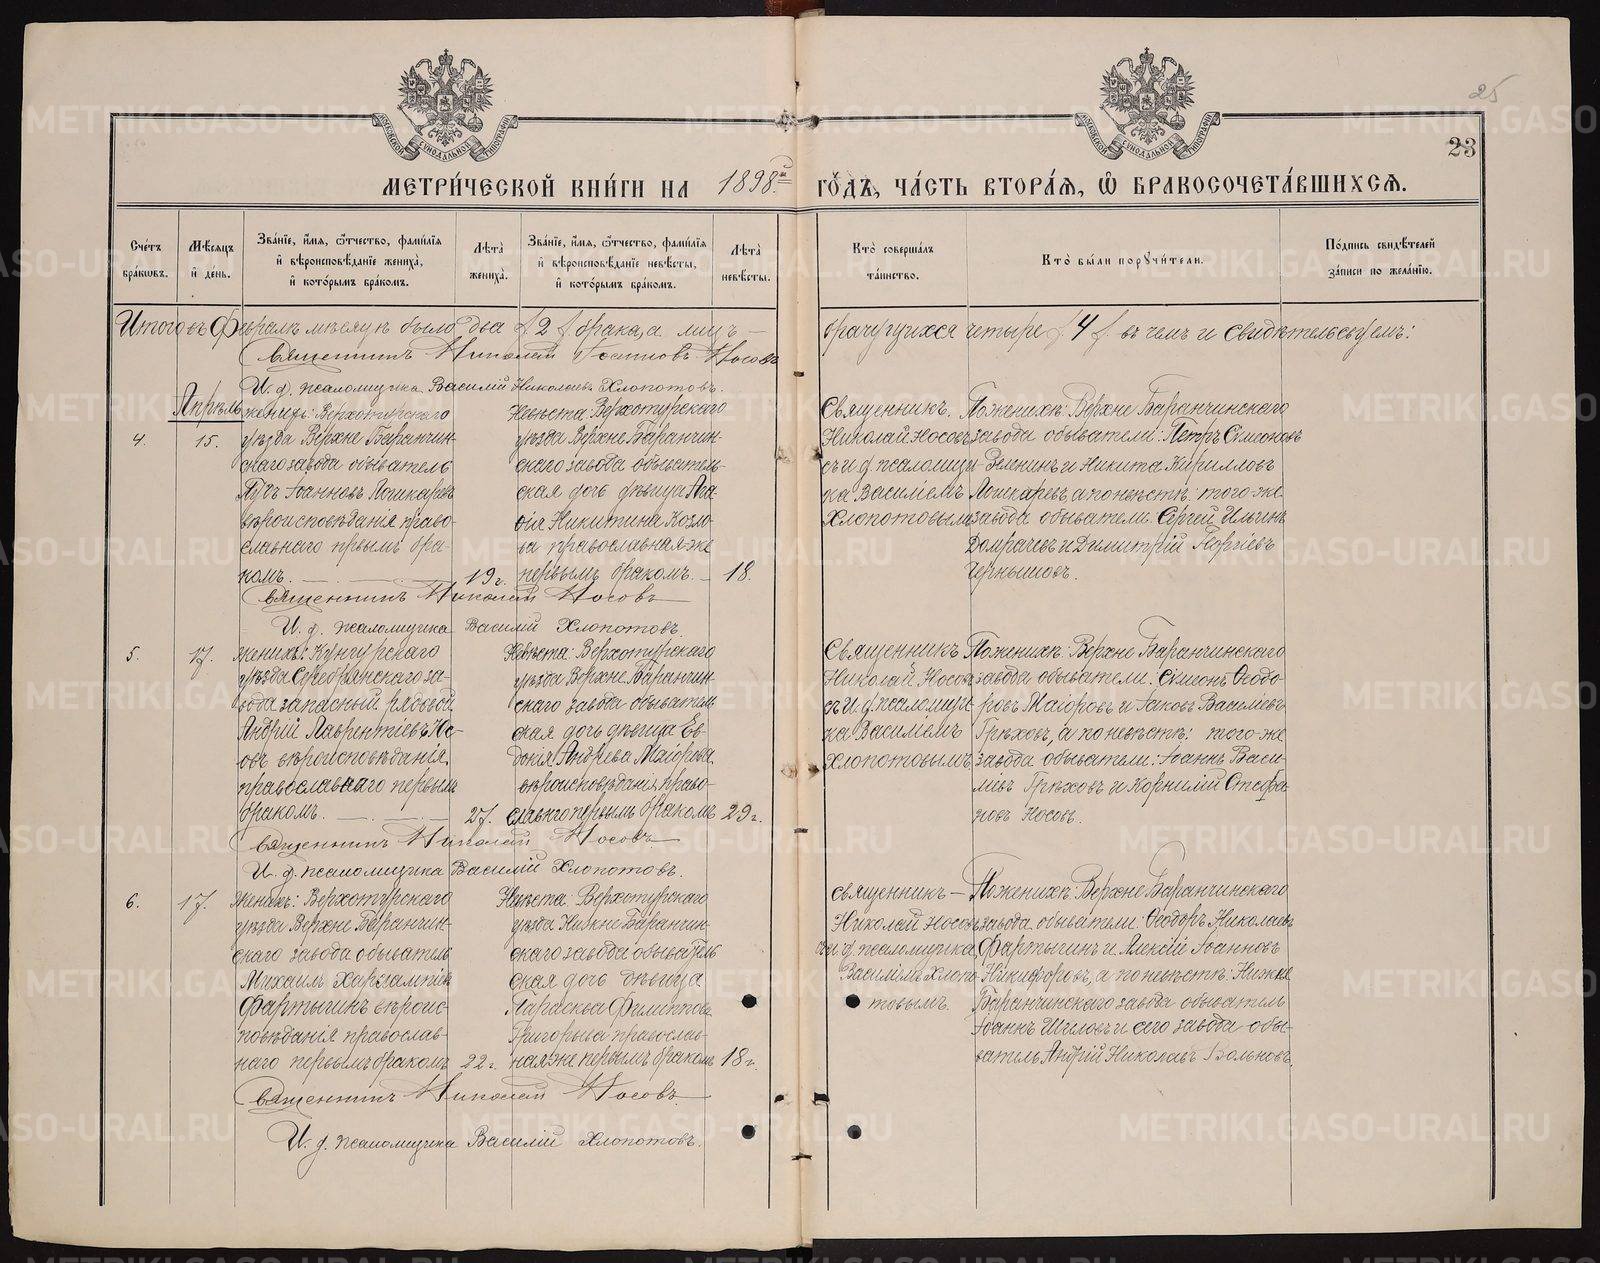 25
23
МОСКОВСКОЙ СѴНОДАЛЬНОЙ ТИПОГРАФІИ
МОСКОВСКОЙ СѴНОДАЛЬНОЙ ТИПОГРАФІИ
МЕТРИ́ЧЕСКОЙ КНИ́ГИ НА 1898й ГО́ДЪ, ЧА́СТЬ ВТОРА́Я, Ѽ БРАКОСОЧЕТА́ВШИХСЯ.
Сче́тъ бра́кѡвъ.
Мѣ́сяцъ и҆ де́нь.
Зва́нїе, и҆́мя, ѻ҆́тчество, фами́лїя и҆ вѣроисповѣ́данїе жениха̀, и҆ кото́рымъ бра́комъ.
Лѣ́та жениха̀.
Зва́нїе, и҆́мя, ѻ҆́тчество, фами́лїя и҆ вѣроисповѣ́данїе невѣ́сты, и҆ кото́рымъ бра́комъ.
Лѣ́та невѣ́сты.
Кто̀ соверша́лъ та́инство.
Кто̀ бы́ли порꙋчи́тели.
По́дпись свидѣ́телей за́писи по жела́нїю.
Итого въ Февралѣ мѣсяцѣ было два /2/ брака, а лицъ — брачущихся четыре /4/ въ чемъ и свидѣтельствуемъ:
Священникъ Николай Носовъ
И. д. псаломщика Василій Николаевъ Хлопотовъ.
Апрѣль
4.
15.
Женихъ: Верхотурскаго
уѣзда Верхне Баранчин-
скаго завода обыватель
Іоанновъ Пошкаревъ
вѣроисповѣданія право-
славнаго первымъ бра-
комъ.
19 г.
Невѣста Верхотурскаго
уѣзда Верхне Баранчин-
скаго завода обыватель-
ская дочь дѣвица Ага-
ѳія Никитина Козло-
ва православная-же
первымъ бракомъ.
18.
Священникъ
Николай Носовъ
съ и. д. псаломщи-
ка Василіемъ
Хлопотовымъ
По женихѣ: Верхне Баранчинскаго
завода обыватели: Петръ Симеоновъ
Зеленинъ и Никита Кирилловъ
Пошкаревъ, а по невѣстѣ: того-же
завода обыватели Сергей Ильинъ
Домрачевъ и Димитрій Георгіевъ
Чернышовъ.
Священникъ Николай Носовъ
И. д. псаломщика Василій Хлопотовъ.
5.
17.
Женихъ: Кунгурскаго
уѣзда Серебрянскаго за-
вода запасный рядовой
Андрей Лаврентіевъ Но-
совъ вѣроисповѣданія
православнаго первымъ
бракомъ.
27.
Невѣста: Верхотурскаго
уѣзда Верхне Баранчин-
скаго завода обыватель
ская дочь дѣвица Ев-
докія Андреева Маіорова
вѣроисповѣданія право-
славнаго первымъ бракомъ
29 г.
Священникъ
Николай Носовъ
съ И. д. псаломщи-
ка Василіемъ
Хлопотовымъ
По женихѣ: Верхне Баранчинскаго
завода обыватели: Симеонъ Ѳеодо-
ровъ Маіоровъ и Іаковъ Василіевъ
Грѣховъ, а по невѣстѣ: того-же
завода обыватели: Іоаннъ Васи-
ліевъ Грѣховъ и Корнилій Стефа-
новъ Носовъ.
Священникъ Николай Носовъ
И. д. псаломщика Василій Хлопотовъ.
6.
17.
Женихъ: Верхотурскаго
уѣзда Верхне Баранчин-
скаго завода обыватель
Михаилъ Харлампіевъ
Фартыгинъ вѣроис-
повѣданія православ-
наго первымъ бракомъ
22 г.
Невѣста Верхотурскаго
уѣзда Нижне Баранчин-
скаго завода обыватель
ская дочь дѣвица
Параскева Филиппова
Григорьева православ-
ная-же первымъ бракомъ
18 г.
Священникъ —
Николай Носовъ
съ и. д. псаломщика
Василіемъ Хлопо-
товымъ.
По женихѣ: Верхне Баранчинскаго
завода обыватели: Ѳеодоръ Николаевъ
Фартыгинъ и Алексій Іоанновъ
Никифоровъ, а по невѣстѣ: Нижне
Баранчинскаго завода обыватель
Іоаннъ Шиловъ и сего завода обы-
ватель Андрій Николаевъ Вольновъ.
Священникъ Николай Носовъ
И. д. псаломщика Василій Хлопотовъ.
METRIKI.GASO-URAL.RU